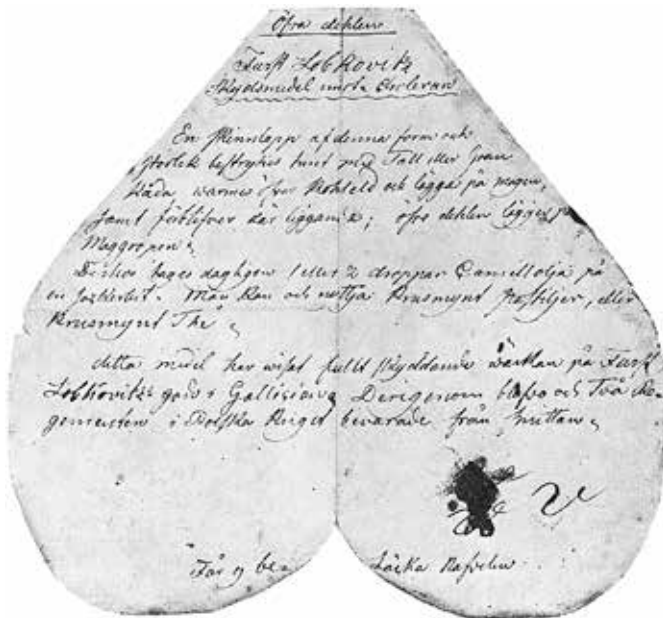 Öfra dehlen
Furst Lobkovitz
Skydsmedel emot Choleran
En skinnlapp af denna form och
storlek bestrykes tunt med Tall eller Gran
Kåda, warmes öfver Kohleld och lägges på magen,
samt förblifver där liggande; öfre dehlen lägges på
Maggropen.
Deshos tages dagligen 1 eller 2 droppar Camillolja på
en sockerbit. Man kan och nyttja Krusmynt Pastiljer, eller
Krusmynt Thé.
detta medel har wisat fullt skyddande wärkan på Furst
Lobkovitz gods i Gallizien, Derigenom blefvo och Två Re-
gementen i Polska Kriget bevarade från smittan.
Får ej be- läcka Nafveln